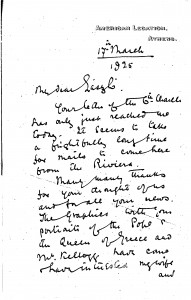 AMERICAN LEGATION,
ATHENS.
17th March
1925
My dear László
Your letter of the 6th March
has only just reached me
today. It seems to take
a frightfully long time
for mails to come here
from the Riviera.
Many many thanks
for your thought of us
and for all your news.
The Graphics with your
portraits of the Pope &
the Queen of Greece and
Mr. Kellogg have come
& have interested my wife
and